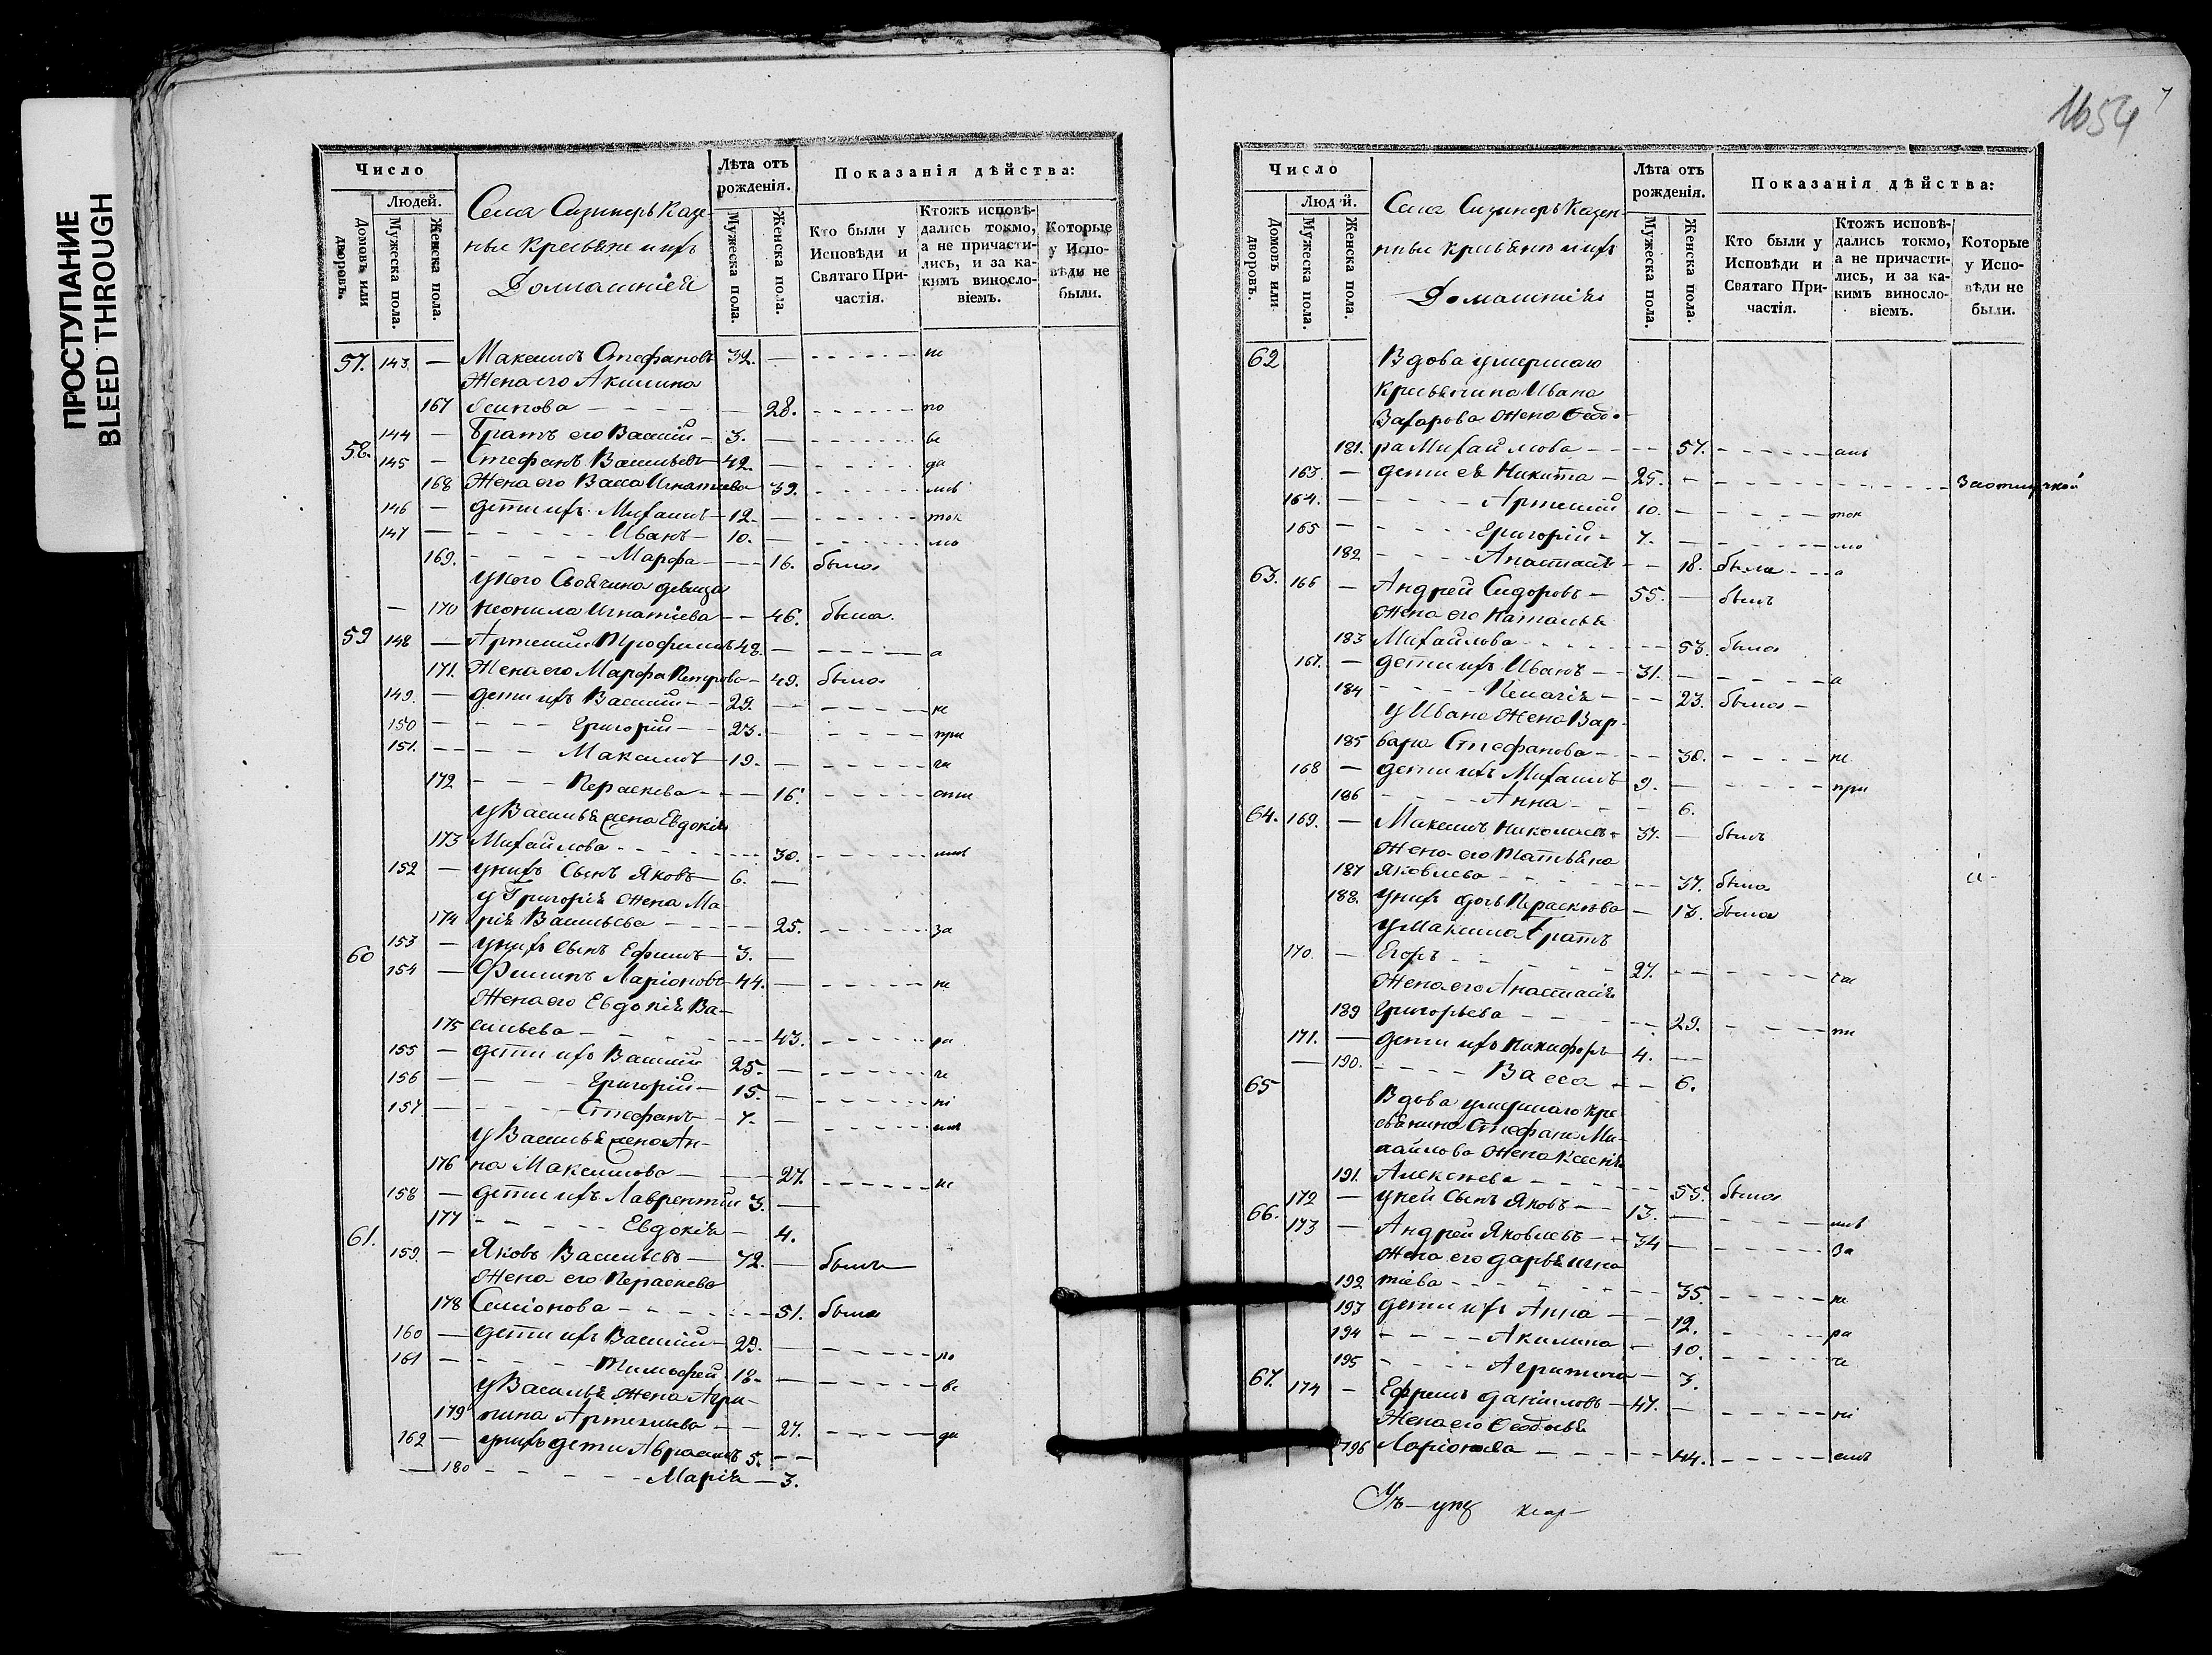 ПРОСТУПАНИЕ
BLEED THROUGH
Число
Людей.
Домовъ или дворовъ.
Мужеска пола.
Женска пола.
Села Сизинеръ Казен-
ные крестьяне и ихъ
Домашнiя
Лѣта отъ рожденія.
Мужеска пола.
Женска пола.
Показанія дѣйства:
Кто были у Исповѣди и Святаго При-частія.
Ктожъ исповѣ-дались токмо, а не причасти-лись, и за ка-кимъ винословіемъ.
Которые у Испо-вѣди не были.
57. 143. — Максимъ Стефановъ 32. — не
Жена его Акилина
167 Осипова — 28. по
144 — Братъ его Василій — 3. — ве
58. 145 — Стефанъ Васильевъ — 42. — да
168 Жена его Васса Игнатиева 39.
146 — дети ихъ Михаилъ — 12. — ток
147 — Иванъ — 10. — мо
169. Марфа — 16. была
у него Своячина девица
— 170 Неонила Игнатіева — 46. была.
59 148 — Артемий Трофимовъ 48. — а
171. Жена его Марфа Петрова — 49. была
149. — дети ихъ Василій — 29. — не
150 — Григорій — 23. — при
151. — Максимъ — 19. — ча
172 — Пераскева — 16. сти
у Василья жена Евдокия
173 Михайлова — 30.
152 — у нихъ Сынъ Яковъ — 6. —
у Григорія жена Ма-
174 рія Васильева — 25. за
153 — у нихъ сынъ Ефимъ — 3. —
60 154 — Филипъ Ларіоновъ — 44. — не
Жена его Евдокія Ва-
175 сильева — 43. ра
155 — дети ихъ Василій 25. — че
156 — Григорій — 15. — ні
157 — Стефанъ — 7. — емъ
у Василья жена Ан-
176 на Максимова — 27. не
158 — дети ихъ Лаврентий 3. —
177 Евдокія — 4.
61. 159. — Яковъ Васильевъ — 72. — былъ
Жена его Пераскева
178 Семіонова — 51. была
160 — дети ихъ Василій — 29. — по
161 — Тимофей 18. — ве
у Василья жена Агри-
179 пина Артемиева — 27. да
162 — у нихъ дети Авраамъ 5. —
— 180 — Марія — 3.
1654
Число
Людей.
Домовъ или дворовъ.
Мужеска пола.
Женска пола.
Села Сизинеръ Казен-
ные крестьяне и ихъ
Домашнія
Лѣта отъ рожденія.
Мужеска пола.
Женска пола.
Показанія дѣйства:
Кто были у Исповѣди и Святаго При-частія.
Ктожъ исповѣ-дались токмо, а не причасти-лись, и за ка-кимъ винословіемъ.
Которые у Испо-вѣди не были.
62 Вдова умершаго
крестьянина Ивана
Захарова жена Федо-
181. ра Михайлова — 57.
163. — дети ея Никита — 25. — За отлучкой
164. — Артемий 10. — ток
165 — Григорій — 7. — мо
182 Анастасія — 18. была — а
63. 166 — Андрей Сидоровъ — 55. — былъ
Жена его Наталья
183 Михайлова 53. была
167. — дети ихъ Иванъ — 31. — а
184 Пелагія — 23. была —
у Ивана Жена Вар-
185 вара Стефанова — 30. не
168 — дети ихъ Михаилъ 9. — при
186 Анна — 6.
64. 169. — Максимъ Николаевъ 37. — былъ
Жена его Татьяна
187 Яковлева — 37. была
188. у нихъ дочь Параскева — 13. была
у Максима братъ
170. — Егоръ 27. — ча
Жена его Анастасія
189 Григорьева — 29.
171. — дети ихъ Никифоръ 4. —
— 190. Васса — 6.
65 Вдова умершаго кре
стьянина Стефана Ми-
хайлова жена Ксенія
191. Алексеева — 55. была
172 — у ней Сынъ Яковъ — 13. —
66. 173 — Андрей Яковлевъ — 34 — за
Жена его Дарья Игна
192 тіева — 35. не
193 дети ихъ Анна — 12. ра
194 Акилина — 10. че
195 Агрипина — 3.
67. 174 — Ефремъ Даниловъ — 47. — ні
Жена его Феодосья
196 Ларіонова — 44. емъ